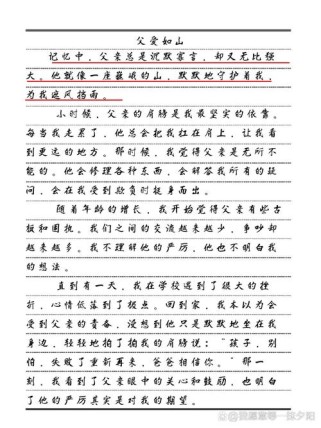 父爱如山
记忆中，父亲总是沉默寡言，却又无比强
大。他就像一座巍峨的山，默默地守护着我，
为我遮风挡雨。
小时候，父亲的肩膀是我最坚实的依靠。
每当我走累了，他总会把我扛在肩上，让我看
到更远的地方。那时候，我觉得父亲是无所不
能的。他会修理各种东西，会解答我所有的疑
问，会在我受到欺负时挺身而出。
随着年龄的增长，我开始觉得父亲有些古
板和固执。我们之间的交流越来越少，争吵却
越来越多。我不理解他的严厉，他也不明白我
的想法。
直到有一天，我在学校遇到了很大的挫
折，心情低落到了极点。回到家，我本以为会
受到父亲的责备，没想到他只是默默地坐在我
身边，轻轻地拍了拍我的肩膀说：“孩子，别
怕，失败了重新再来，爸爸相信你。”那一
刻，我看到了父亲眼中的关心和鼓励，也明白
了他的严厉其实是对我的期望。